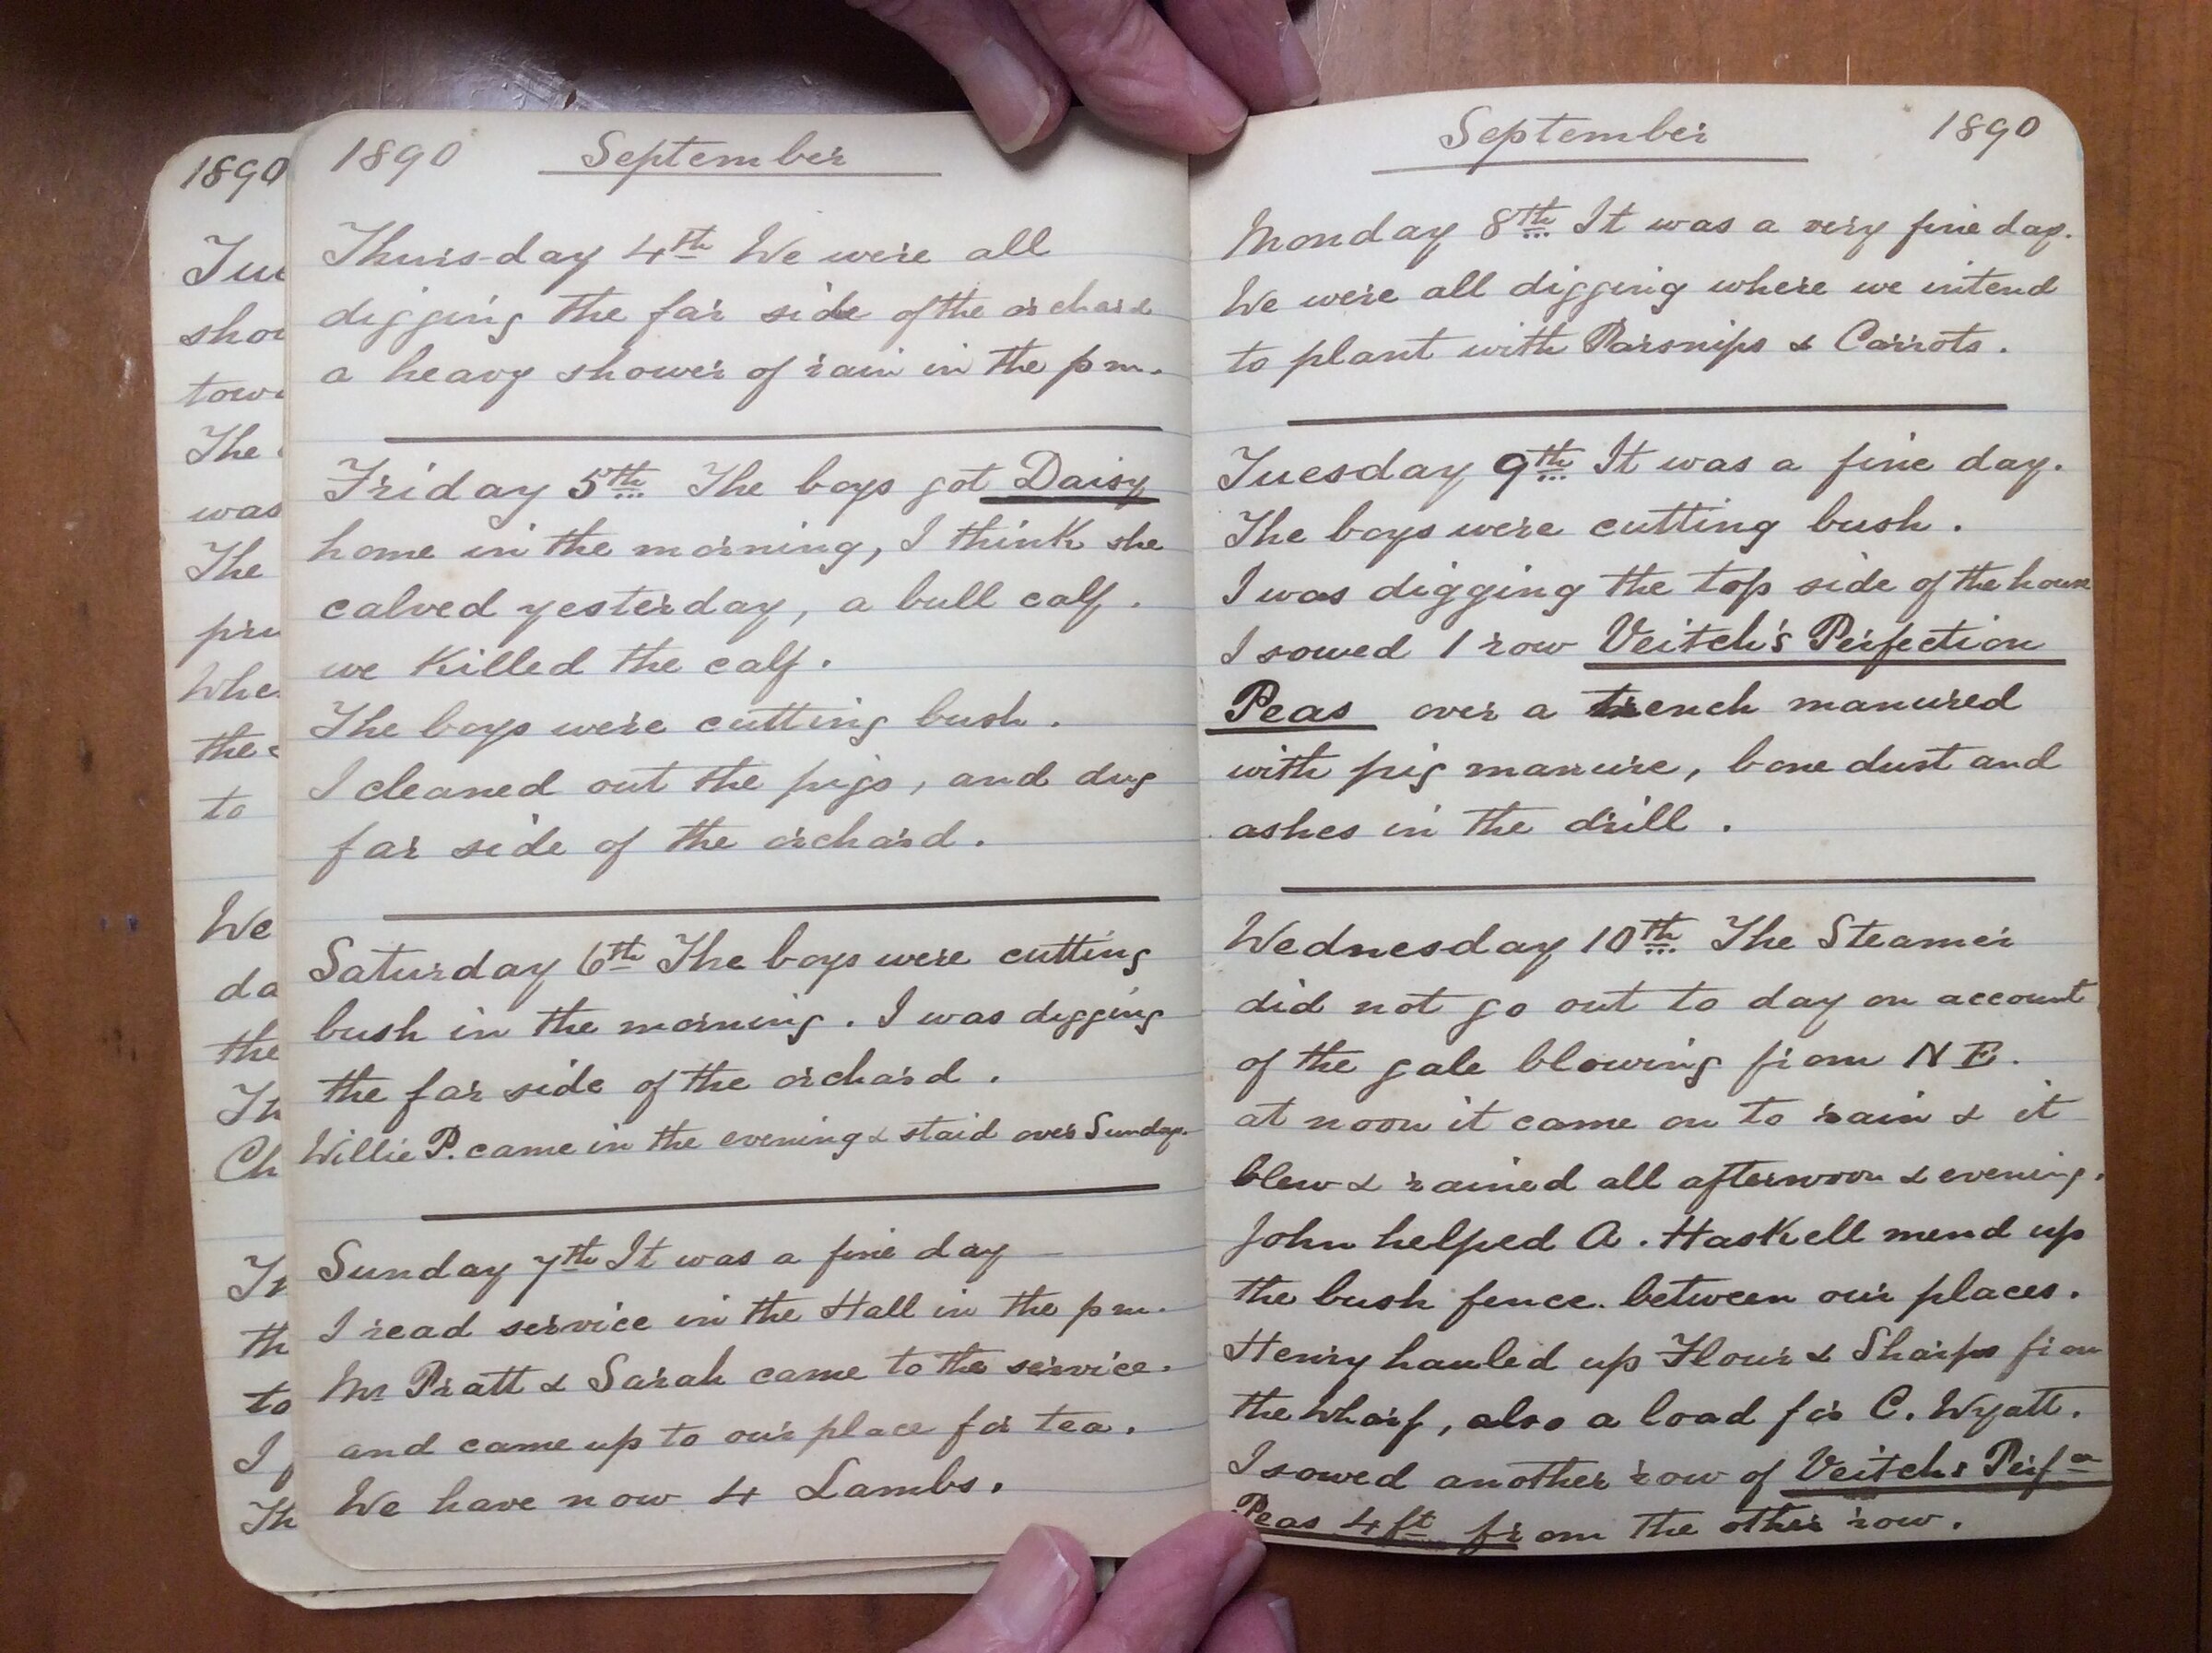 1890
Tue
shou
tow
The
was
The
pru
Whe
the
to
We
da
the
In
Ch
In
th
to
I
Th
1890 September
Thursday 4th We were all
digging the far side of the orchard
a heavy shower of rain in the pm.
Friday 5th The boys got Daisy
home in the morning, I think she
calved yesterday, a bull calf.
we Killed the calf.
The boys were cutting bush.
I cleaned out the pigs, and dug
far side of the orchard.
Saturday 6th The boys were cutting
bush in the morning. I was digging
the far side of the orchard.
Willie P. came in the evening & staid over Sunday.
Sunday 7th It was a fine day
I read service in the Hall in the pm.
Mr Pratt & Sarah came to the service.
and came up to our place for tea.
We have now 4 Lambs.
September 1890
Monday 8th It was a very fine day.
We were all digging where we intend
to plant with Parsnips & Carrots.
Tuesday 9th It was a fine day.
The boys were cutting bush.
I was digging the top side of the house
I sowed 1 row Veitch's Perfection
Peas over a trench manured
with pig manure, bone dust and
ashes in the drill.
Wednesday 10th The Steamer
did not go out to day on account
of the gale blowing from N E.
at noon it came on to rain & it
blew & rained all afternoon & evening.
John helped A. Haskell mend up
the bush fence. between our places.
Henry hauled up Flour & Sharps from
the Wharf, also a load for C. Wyatt.
I sowed another row of Veitchs Perfn
Peas 4 ft from the other row.